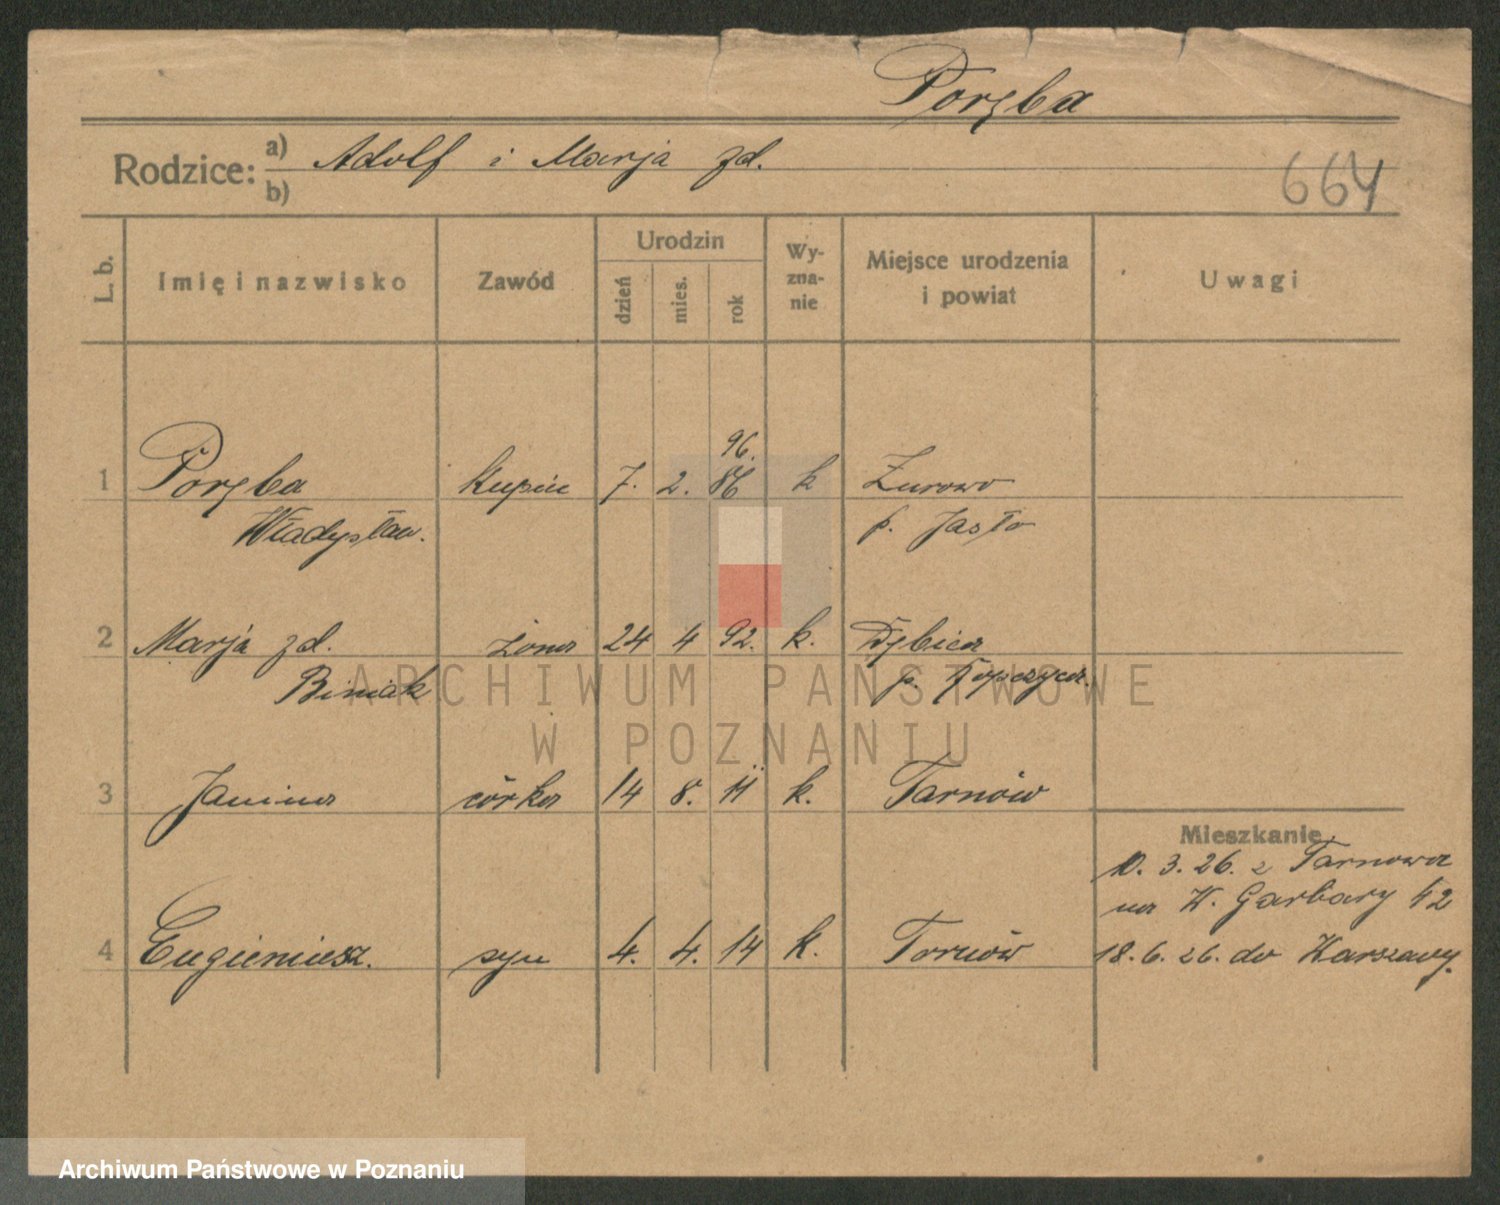 Poręba
Rodzice: a) Adolf i Marja zd.
b)
664
L. b. Imię i nazwisko Zawód Urodzin dzień mies. rok Wyznanie Miejsce urodzenia i powiat Uwagi
96.
1 Poręba kupiec 7. 2. 86 k Żurowo
Władysław. p. Jasło
2 Marja zd. żona 24 4 92. k. Dębica
Biniak p. Ropczyca.
ARCHIWUM PAŃSTWOWE
W POZNANIU
3 Janina córka 14 8. 11 k. Tarnów
Mieszkanie
10. 3. 26. z Tarnowa
na W. Garbary 42
4 Eugieniusz. syn 4. 4. 14 k. Tarnów 18. 6. 26. do Warszawy.
Archiwum Państwowe w Poznaniu